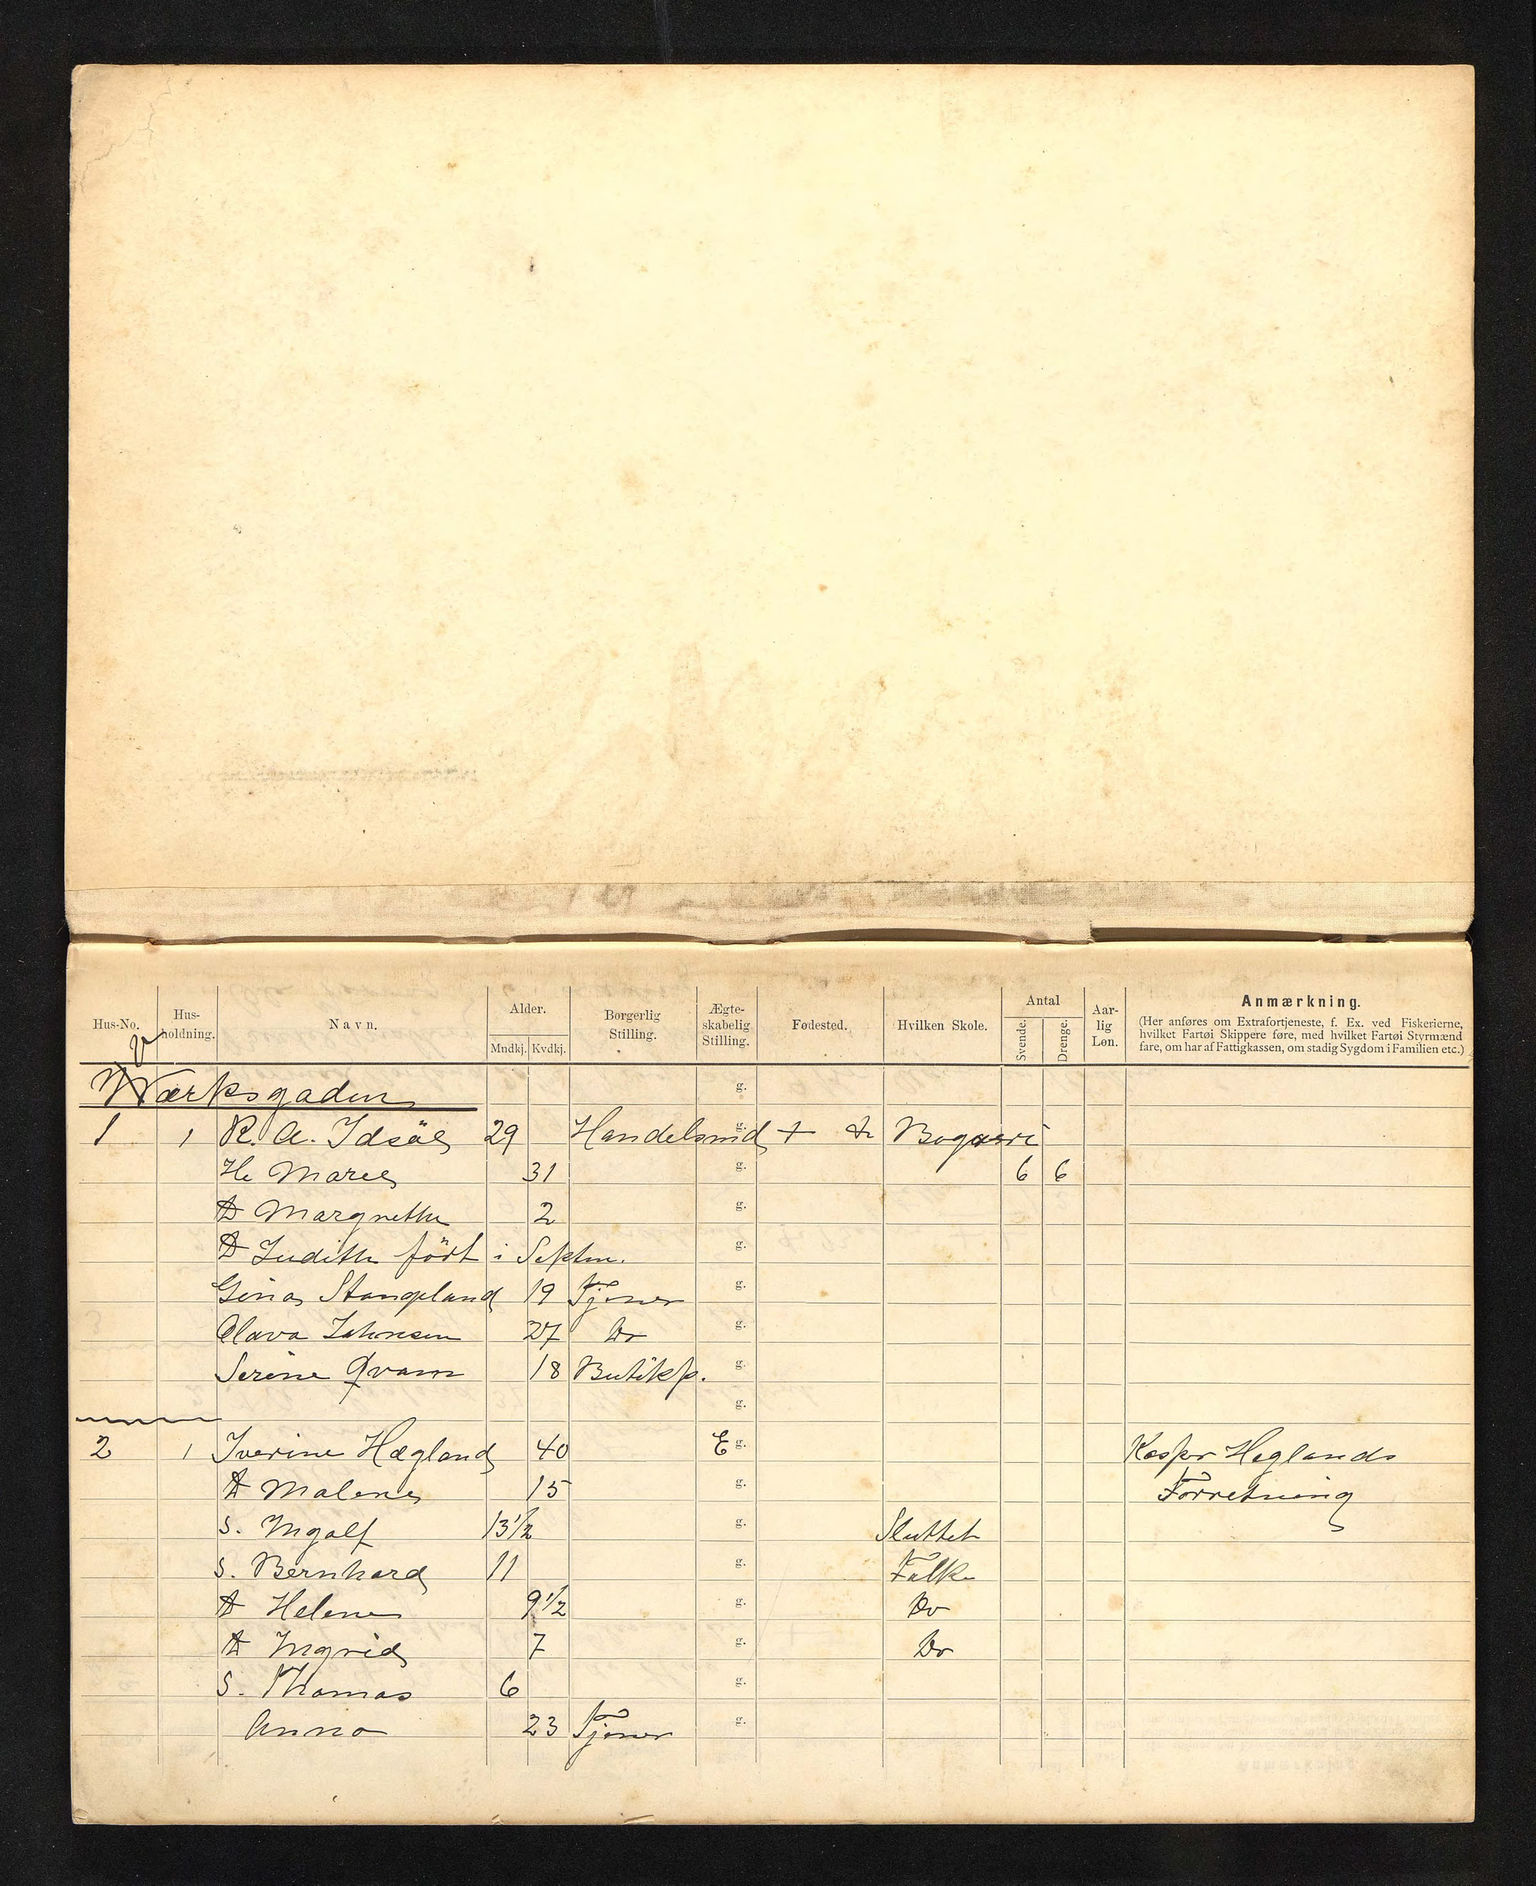 Hus-No. Hus-holdning. Navn. Alder. Mndkj. Kvdkj. Borgerlig Stilling. Ægte-skabelig Stilling. Fødested. Hvilken Skole. Antal Svende. Drenge. Aar-lig Løn. Anmærkning.
(Her anføres om Extrafortjeneste, f. Ex. ved Fiskerierne,
hvilket Fartøi Skippere føre, med hvilket Fartøi Styrmænd
fare, om har af Fattigkassen, om stadig Sygdom i Familien etc.)
Værksgaden g.
1 1 R. A. Idsöe 29 Handelsmd g. +
H. Marie 31 g. 6 6
D Margrethe 2 g.
D Judith födt i Septm. g.
Gina Stangeland 19 Tjener g.
Olava Johnsen 27 Do g.
Serine Qvam 18 Butikp. g.
g.
2 1 Iverine Hægland 40 E g. Kaspr Heglands
D Malene 15 g. Forretning
S. Ingolf 13 1/2 g. Sluttet
S. Bernhard 11 g. Folke
D Helene 9 1/2 g. Do
D Ingrid 7 g. Do
S. Thomas 6 g.
Anna 23 Tjener g.